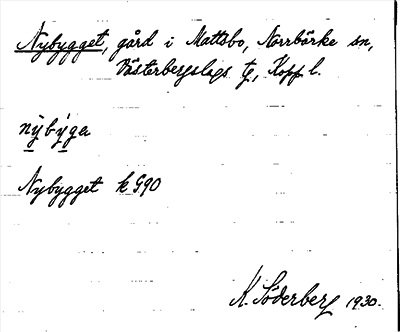 Nybygget, gård i Mattsbo, Norrbärke sn,
Västerbergslags tg, Kopp. l.
nybyga
Nybygget k G90
K. Söderberg 1930.